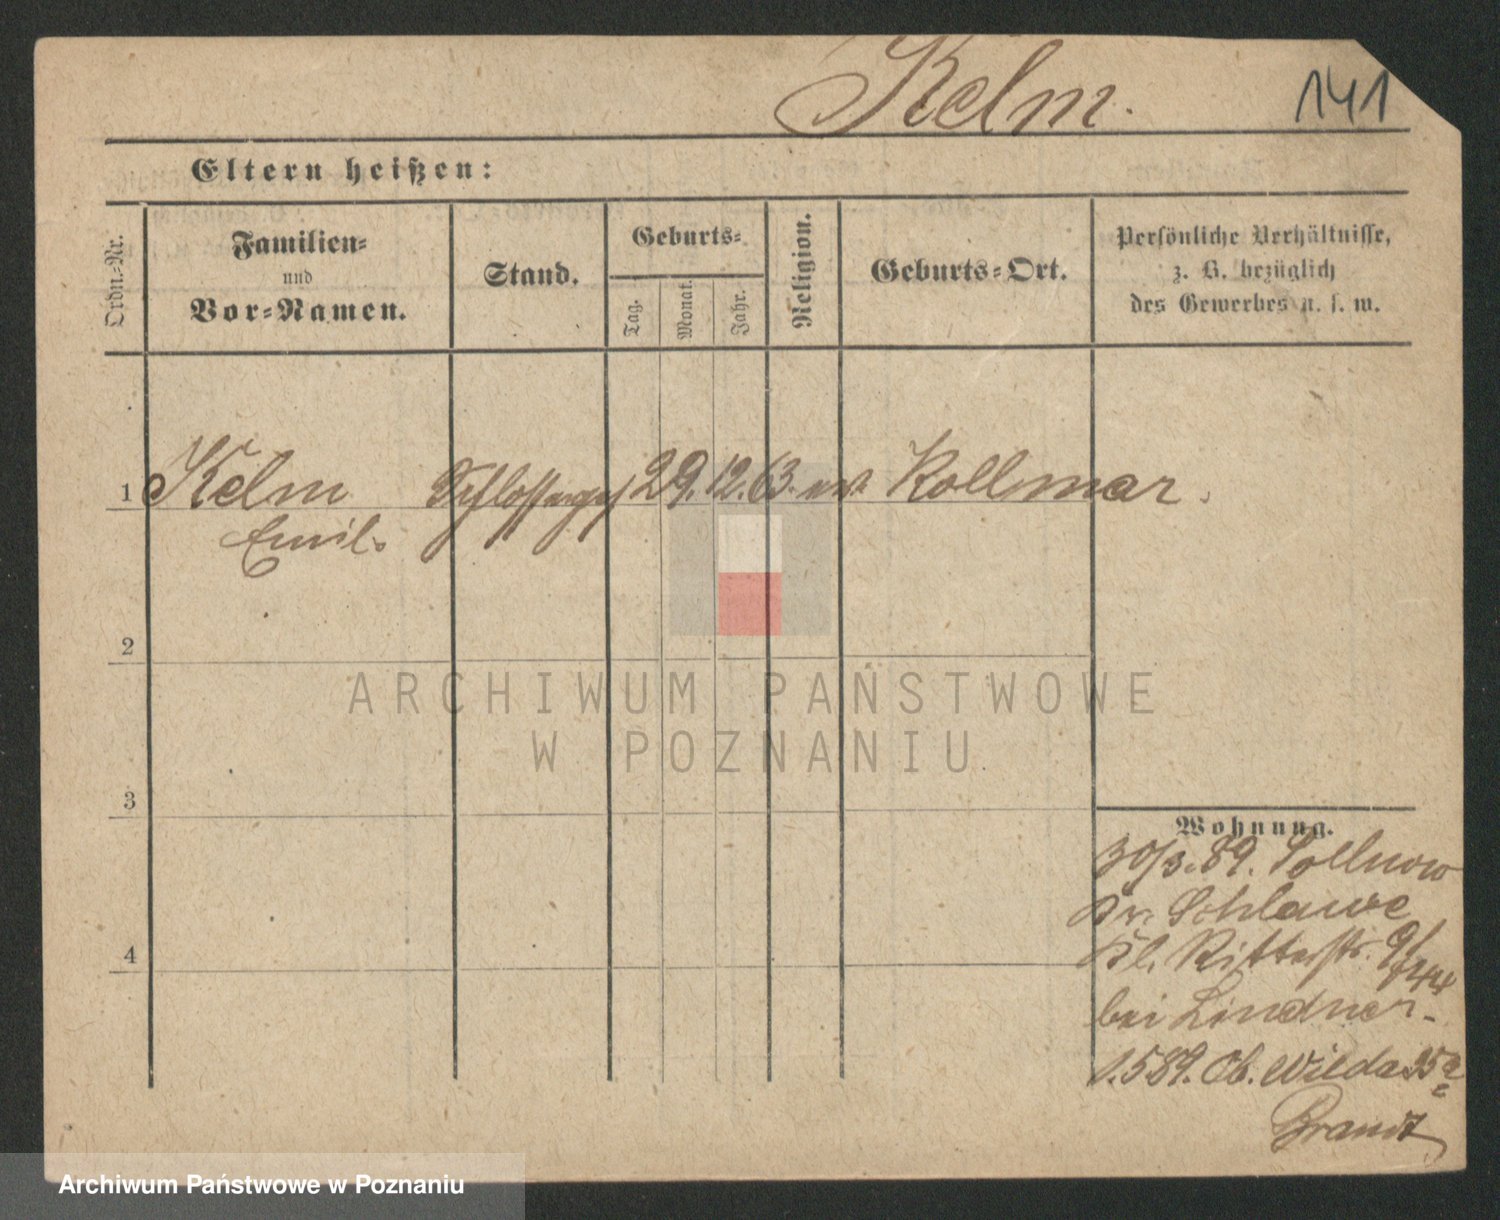 Kelm. 141
Eltern heißen:
Ordn.-Nr.
Familien-
und
Vor-Namen.
Stand.
Geburts-
Tag.
Monat.
Jahr.
Religion.
Geburts-Ort.
Persönliche Verhältnisse,
z. B. bezüglich
des Gewerbes u. s. w.
1 Kelm Schlosserges 29. 12. 63. ev. Kollmar.
Emil.
2
3
4
Wohnung.
30/3. 89. Sollnow
Kr. Schlawe
Kl. Ritterstr.
bei Lindner.
1.5 89. Ob. Wilda
Brandt
ARCHIWUM PAŃSTWOWE
W POZNANIU
Archiwum Państwowe w Poznaniu